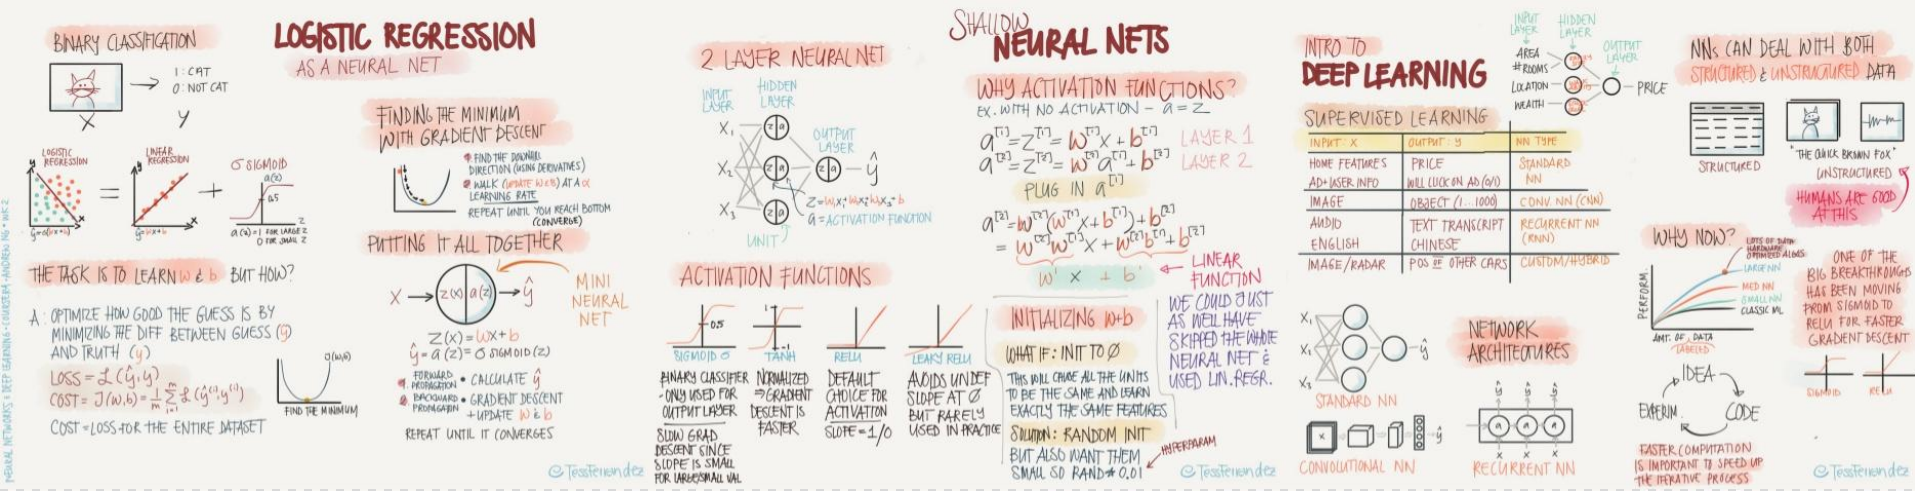 BINARY CLASSIFICATION
1: CAT
0: NOT CAT
X
y
LOGISTIC
REGRESSION
=
LINEAR
REGRESSION
+
σ SIGMOID
a(z)
0.5
z
a(z)=1 FOR LARGE z
0 FOR SMALL z
THE TASK IS TO LEARN w & b BUT HOW?
A: OPTIMIZE HOW GOOD THE GUESS IS BY
MINIMIZING THE DIFF BETWEEN GUESS (ŷ)
AND TRUTH (y)
LOSS = ℒ(ŷ,y)
COST = J(w,b) = 1/m Σ ℒ(ŷ⁽ⁱ⁾,y⁽ⁱ⁾)
COST = LOSS FOR THE ENTIRE DATASET
J(w,b)
FIND THE MINIMUM
NEURAL NETWORKS & DEEP LEARNING • COURSERA • ANDREW NG • WK 2
LOGISTIC REGRESSION
AS A NEURAL NET
FINDING THE MINIMUM
WITH GRADIENT DESCENT
FIND THE DOWNHILL
DIRECTION (USING DERIVATIVES)
WALK (UPDATE w & b) AT A α
LEARNING RATE
REPEAT UNTIL YOU REACH BOTTOM
(CONVERGE)
PUTTING IT ALL TOGETHER
X → z(x) a(z) → ŷ
MINI
NEURAL
NET
z(x) = wx + b
ŷ = a(z) = σ SIGMOID(z)
FORWARD
PROPAGATION • CALCULATE ŷ
BACKWARD
PROPAGATION • GRADIENT DESCENT
+ UPDATE w & b
REPEAT UNTIL IT CONVERGES
© TessFerrandez
SHALLOW
NEURAL NETS
2 LAYER NEURAL NET
INPUT
LAYER
HIDDEN
LAYER
OUTPUT
LAYER
X₁
z a
X₂
z a
z a
ŷ
X₃
z a
a = ACTIVATION FUNCTION
UNIT
ACTIVATION FUNCTIONS
0.5
SIGMOID σ
BINARY CLASSIFIER
- ONLY USED FOR
OUTPUT LAYER
SLOW GRAD
DESCENT SINCE
SLOPE IS SMALL
FOR LARGE/SMALL VAL
1
-1
TANH
NORMALIZED
⇒ GRADIENT
DESCENT IS
FASTER
RELU
DEFAULT
CHOICE FOR
ACTIVATION
SLOPE = 1/0
LEAKY RELU
AVOIDS UNDEF
SLOPE AT 0
BUT RARELY
USED IN PRACTICE
WHY ACTIVATION FUNCTIONS?
EX. WITH NO ACTIVATION - a = z
a[1] = z[1] = w[1]x + b[1] LAYER 1
a[2] = z[2] = w[2]a[1] + b[2] LAYER 2
PLUG IN a[1]
a[2] = w[2](w[1]x + b[1]) + b[2]
= w[2]w[1]x + w[2]b[1] + b[2]
w' x + b'
LINEAR
FUNCTION
WE COULD JUST
AS WELL HAVE
SKIPPED THE WHOLE
NEURAL NET &
USED LIN. REGR.
INITIALIZING w+b
WHAT IF: INIT TO 0
THIS WILL CAUSE ALL THE UNITS
TO BE THE SAME AND LEARN
EXACTLY THE SAME FEATURES
SOLUTION: RANDOM INIT
BUT ALSO WANT THEM
SMALL SO RAND * 0.01
HYPERPARAM
© TessFerrandez
INTRO TO
DEEP LEARNING
INPUT
LAYER
HIDDEN
LAYER
OUTPUT
LAYER
AREA
#ROOMS
LOCATION
WEALTH
PRICE
SUPERVISED LEARNING
INPUT: X OUTPUT: y NN TYPE
HOME FEATURES PRICE STANDARD
AD+USER INFO WILL CLICK ON AD (0/1) NN
IMAGE OBJECT (1...1000) CONV. NN (CNN)
AUDIO TEXT TRANSCRIPT RECURRENT NN
ENGLISH CHINESE (RNN)
IMAGE/RADAR POS OF OTHER CARS CUSTOM/HYBRID
X₁
X₂
ŷ
X₃
STANDARD NN
NETWORK
ARCHITECTURES
X
ŷ
CONVOLUTIONAL NN
ŷ ŷ ŷ
a a a
x x x
RECURRENT NN
NNs CAN DEAL WITH BOTH
STRUCTURED & UNSTRUCTURED DATA
STRUCTURED
"THE QUICK BROWN FOX"
UNSTRUCTURED
HUMANS ARE GOOD
AT THIS
WHY NOW?
LOTS OF DATA
HARDWARE
OPTIMIZED ALGOS.
LARGE NN
MED NN
SMALL NN
CLASSIC ML
PERFORM.
AMT. OF DATA
LABELED
ONE OF THE
BIG BREAKTHROUGHS
HAS BEEN MOVING
FROM SIGMOID TO
RELU FOR FASTER
GRADIENT DESCENT
SIGMOID
RELU
IDEA
EXPERIM.
CODE
FASTER COMPUTATION
IS IMPORTANT TO SPEED UP
THE ITERATIVE PROCESS
© TessFerrandez